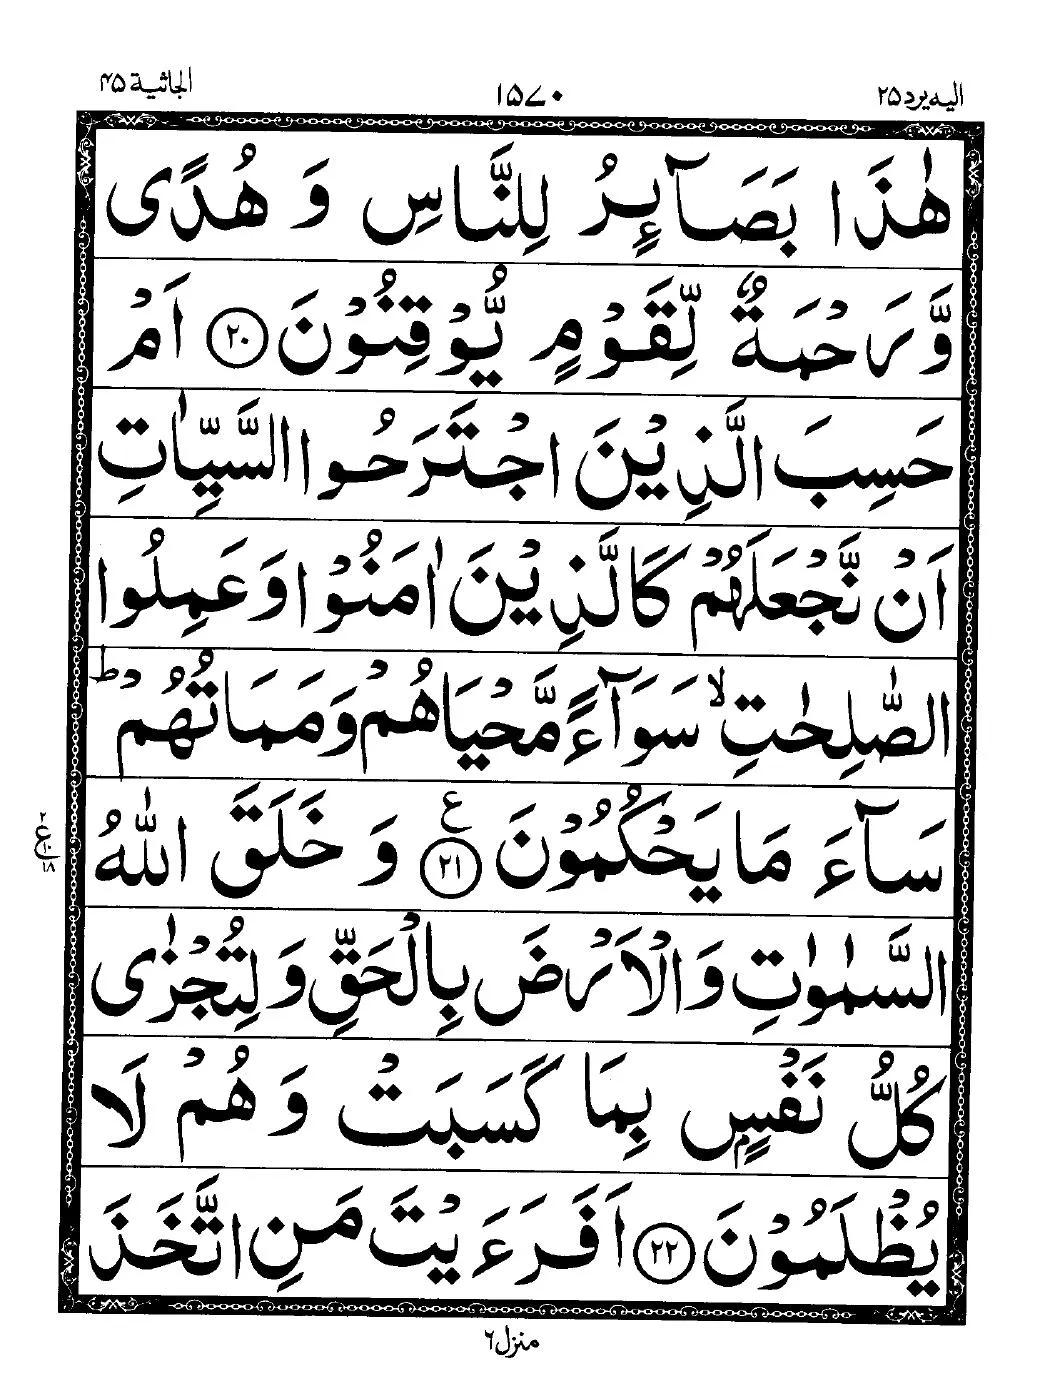 الیه یرد ۲۵ ۱۵۷۰ الجاثیة ۴۵
هٰذَا بَصَآىِٕرُ لِلنَّاسِ وَ هُدًی
وَّ رَحْمَةٌ لِّقَوْمٍ یُّوْقِنُوْنَ ﴿۲۰﴾ اَمْ
حَسِبَ الَّذِیْنَ اجْتَرَحُوا السَّیِّاٰتِ
اَنْ نَّجْعَلَهُمْ كَالَّذِیْنَ اٰمَنُوْا وَ عَمِلُوا
الصّٰلِحٰتِ ۙ سَوَآءً مَّحْیَاهُمْ وَ مَمَاتُهُمْ ؕ
سَآءَ مَا یَحْكُمُوْنَ ﴿۲۱﴾ ع وَ خَلَقَ اللّٰهُ
۲ ع ۱۸
السَّمٰوٰتِ وَ الْاَرْضَ بِالْحَقِّ وَ لِتُجْزٰی
كُلُّ نَفْسٍۭ بِمَا كَسَبَتْ وَ هُمْ لَا
یُظْلَمُوْنَ ﴿۲۲﴾ اَفَرَءَیْتَ مَنِ اتَّخَذَ
منزل ۶